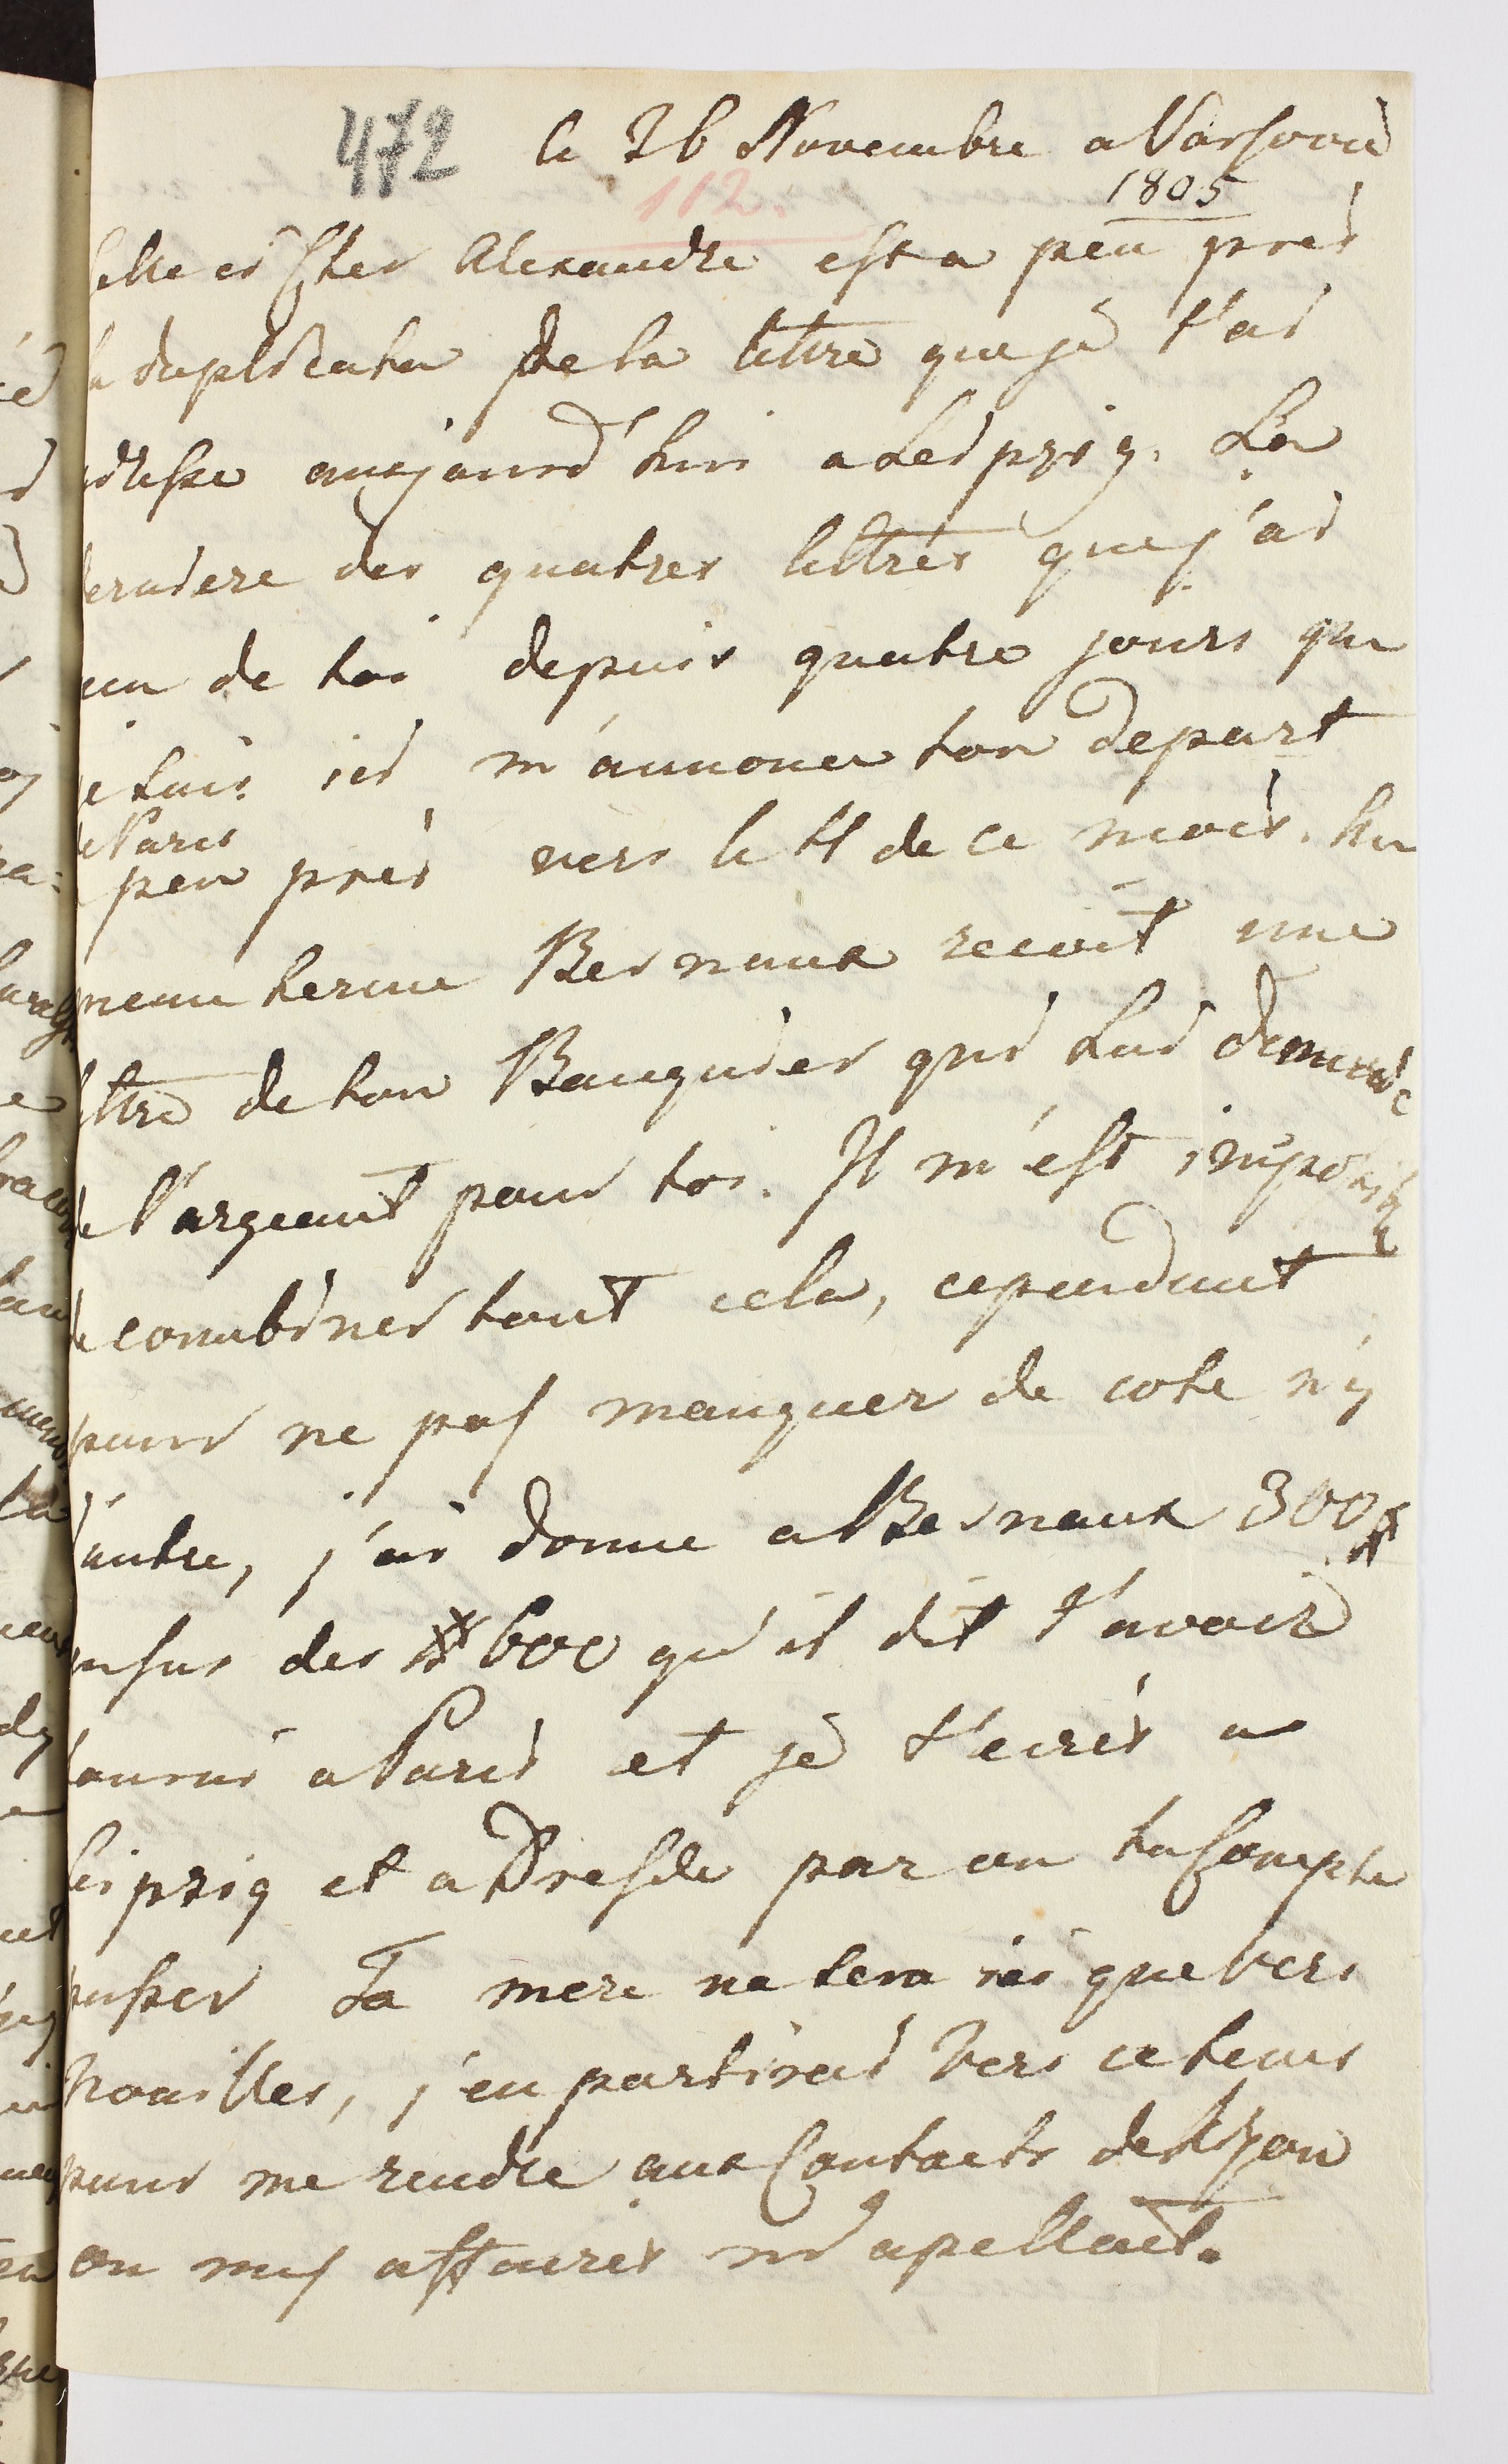 472 le 26 Novembre a Varsovie
112. 1805
Celle ci Cher Alexandre est a peu près
duplicata de la lettre que je t'ai
adresse aujourd'hui a Leipzig. La
derniere des quatres lettres que j'ai
eu de toi depuis quatre jours que
je suis ici m'annonce ton depart
de Paris
peu près vers le 11 de ce mois. En
meme temu Bernaux recoit une
lettre de ton Banquier qui lui demande
de l'argeant pour toi. Il m'est imposible
de combiner tout cela, cependant
pour ne pas manquer de cote n'y
d'autre, j'ai donne a Bernaux 300 #
en sus des # 600 qu'il dit t'avoir
fourni a Paris et je t'ecris a
Leipzig et a Dresde par ou tu Compte
passer Ta mere ne sera ici que vers
Noailles, j'en partirai vers ce tems
pour me rendre aux Contracts de Kyon
ou mes affaires m'apellait.